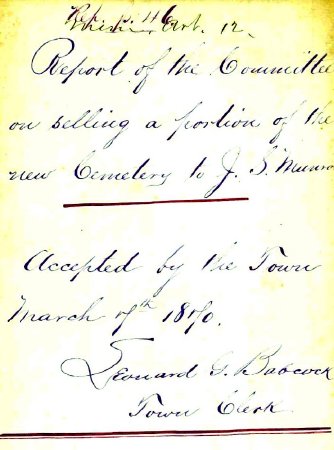 Art. 12.
Report of the Committee
on selling a portion of the
new Cemetery to J. S. Munro
Accepted by the Town
March 7th 1870.
Leonard G. Babcock
Town Clerk